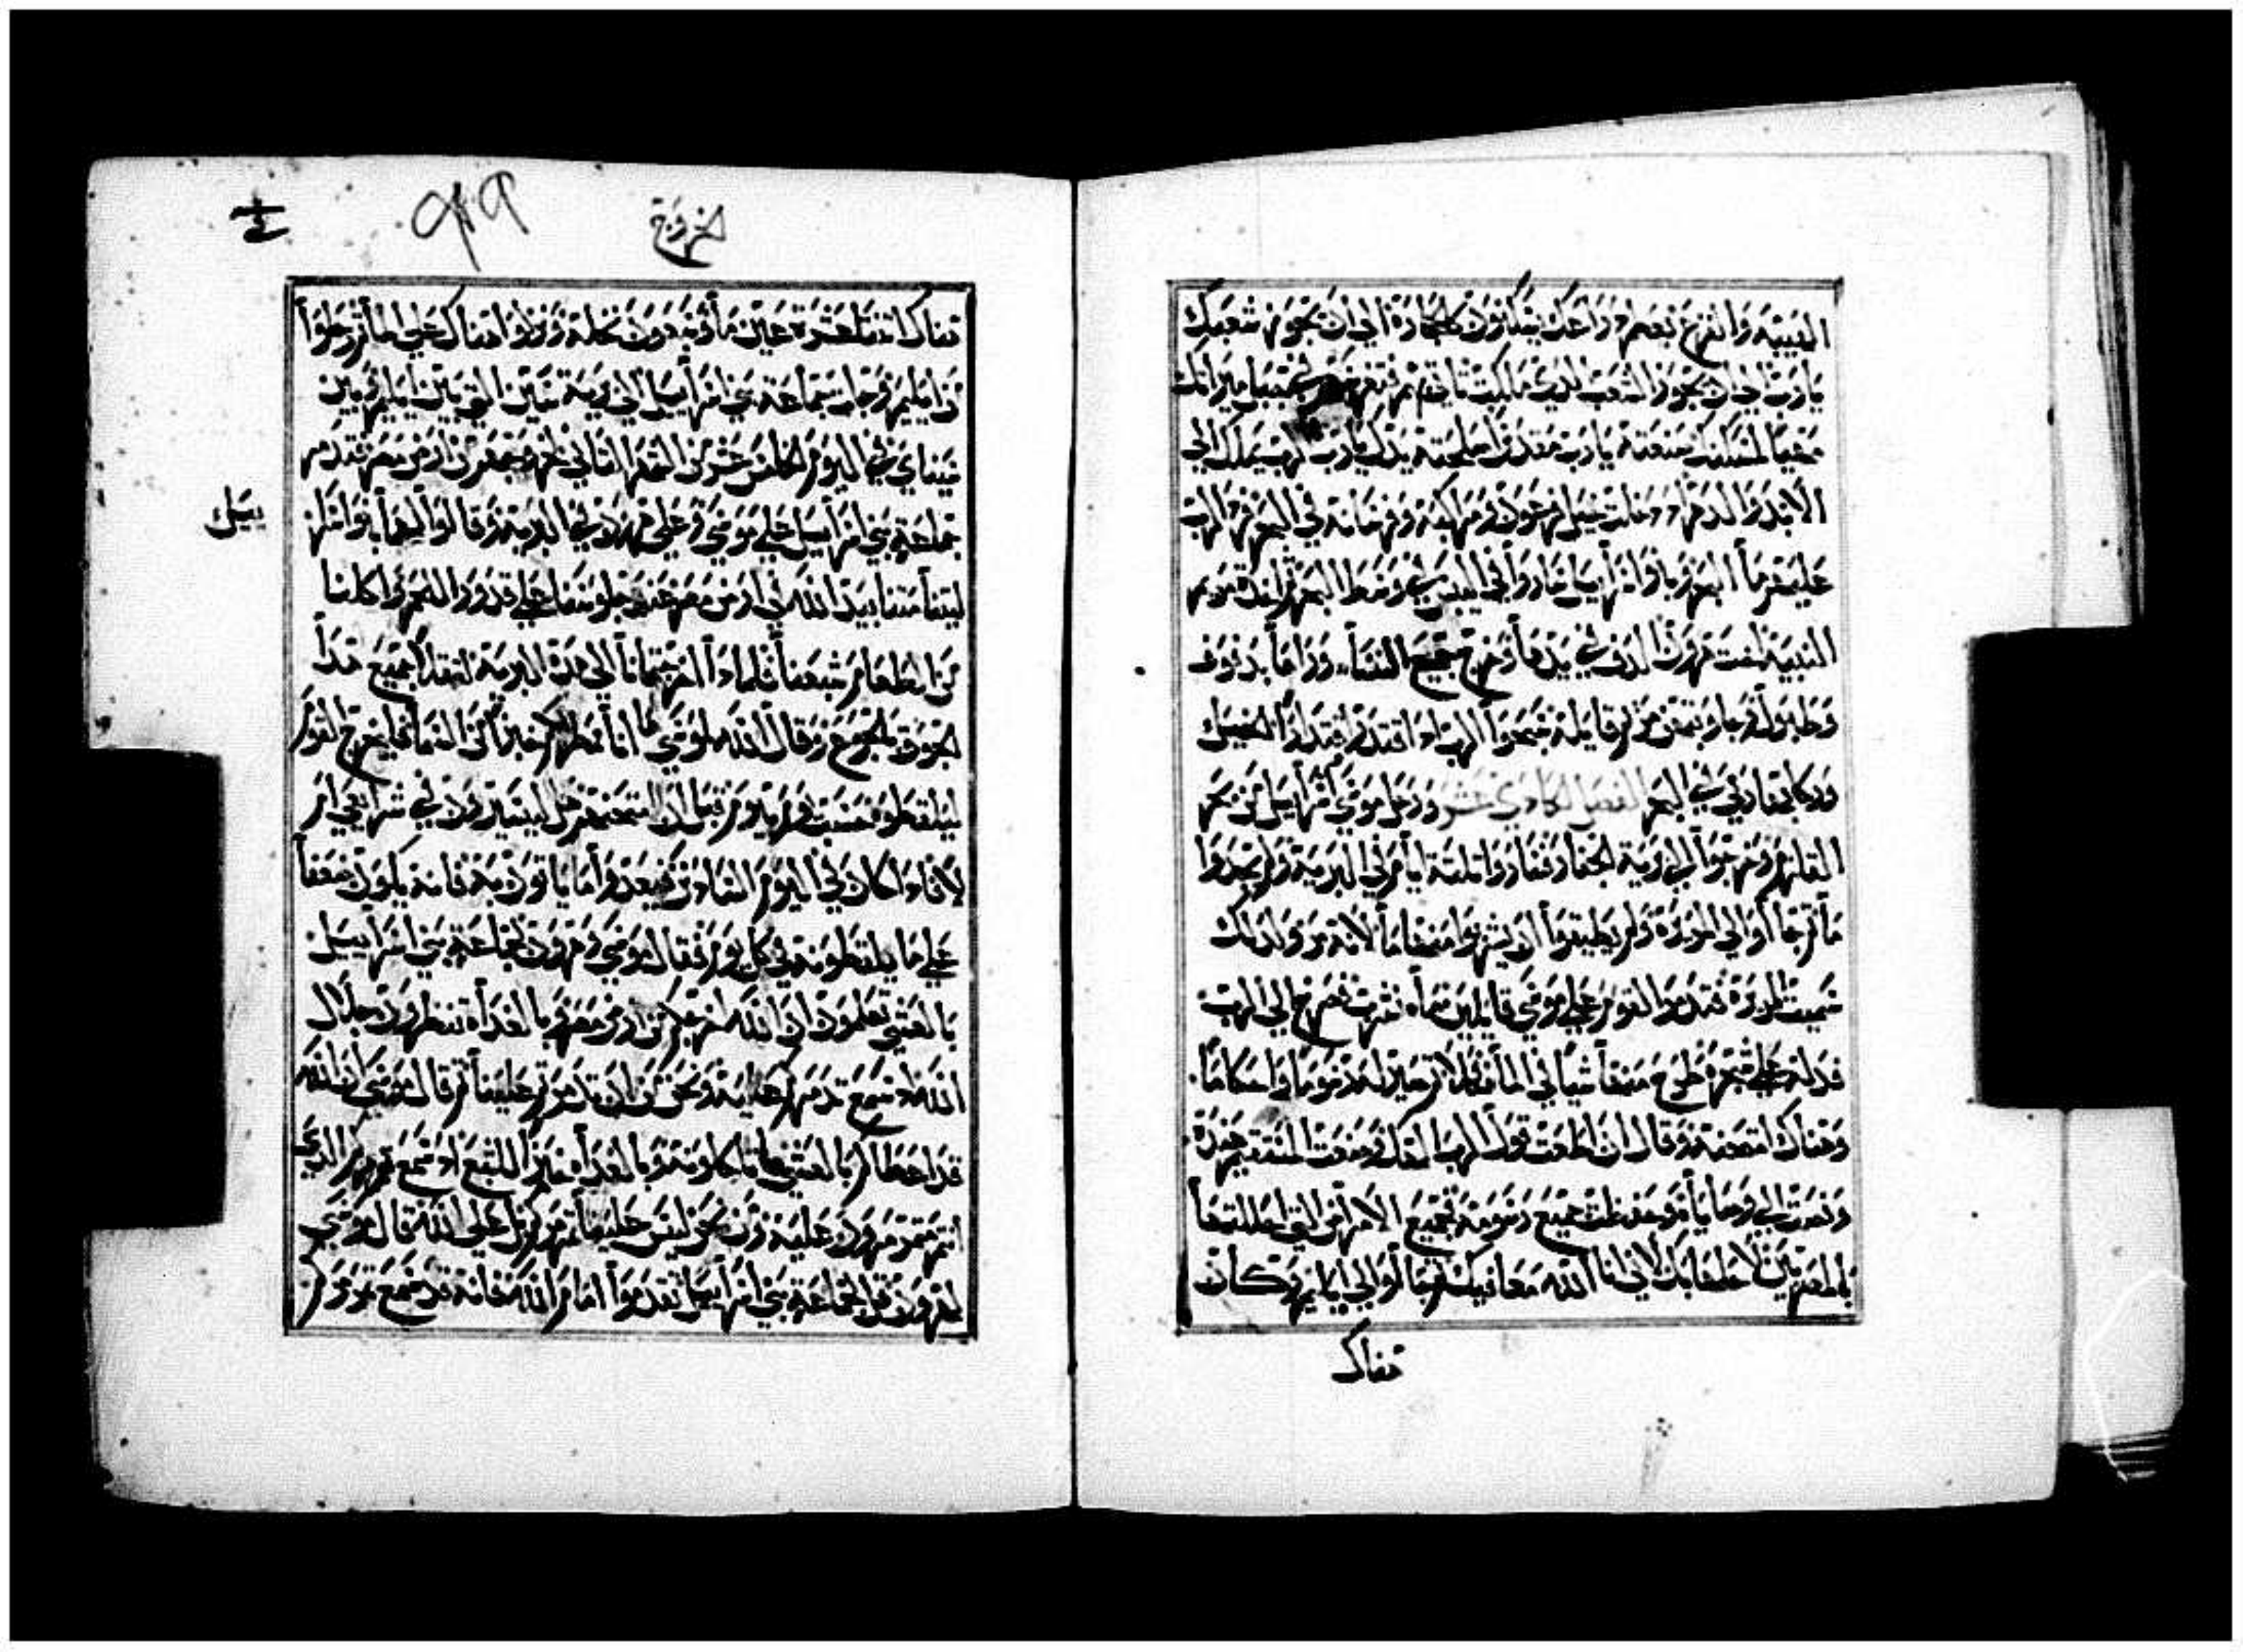 الهيبة والفزع بعظم ذراعك يسكنون كالحجارة الي ان يجوز شعبك
يارب الي ان يجوز الشعب الذي ملكت تاتي بهم فتغرسهم في جبل ميراثك
مهيا لمسكنك صنعته يارب مقدسا اصلحته يداك يارب الرب يملك الي
الابد والدهر ودخلت خيل فرعون ومراكبه وفرسانه في البحر فرد الرب
عليهم ما البحر وبنو اسراييل ساروا في اليبس في وسط البحر ثم اخذت مريم
النبية اخت هرون الدف في يدها وخرج جميع النسا وراها بدفوف
وطبول وجاوبتهن مريم قايلة سبحوا الرب اذ اقتدر اقتدارا الخيل
وركابها رمي في البحر الفصل الحادي عشر ورحل موسي اسراييل من بحر
القلزم وخرجوا الي برية الجفار فساروا ثلثة ايام في البرية ولم يجدوا
ما ثم جاوا الي المرة ولم يطيقوا ان يشربوا منها ما لانه مر ولذلك
سميت المرة فتذمر القوم علي موسي قايلين ما نشرب فصرخ الي الرب
فدله علي شجرة طرح منها شيا في الما فحلا ثم صير له رسوما واحكاما
وهناك امتحنه وقال ان اطعت قول الرب الهك وصنعت المستقيم عنده
ونصت الي وصاياه وحفظت جميع رسومه فجميع الامراض التي احللتها
بالمصريين لا احلها بك لاني انا الله معافيك ثم جاوا الي ايليم وكان
هناك
خروج
هناك اثنتا عشرة عين ما وسبعون نخلة ونزلوا هناك علي الما ثم رحلوا
من ايليم وجا جماعة بني اسراييل الي برية سين التي بين ايليم وبين
سيناي في اليوم الخامس عشر من الشهر الثاني لخروجهم من ارض مصر فتذمر
جماعة بني اسراييل علي موسي وعلي هرون في البرية وقالوا لهما بنو اسرا
ييل
ليتنا متنا بيد الله في ارض مصر عند جلوسنا علي قدور اللحم واكلنا
من الطعام شبعنا فلماذا اخرجتمانا الي هذه البرية لتقتلا جميع هذا
الجوق بالجوع وقال الله لموسي ها انا ممطر لكم خبزا من السما فليخرج القوم
ليلقطوه حسب يوم بيوم قبل ان امتحنهم هل يسيرون في شرايعي ام
لا فاذا كان في اليوم السادس فيعدوا ما ياتون به فانه يكون ضعفا
علي ما يلقطونه في كل يوم فقال موسي وهرون لجماعة بني اسراييل
بالعشي تعلمون ان الله اخرجكم من ارض مصر وبالغداة تنظرون جلال
الله اذ سمع تذمركم عليه ونحن من ان تتذمروا علينا ثم قال موسي ان الله
قد اعطاكم بالعشي لحما تاكلونه وبالغداة خبزا للشبع اذ سمع تذمركم الذي
انتم متذمرون عليه ومن نحن ليس علينا تذمركم بل علي الله فقال موسي
لهرون قل لجماعة بني اسراييل تقدموا امام الله فانه قد سمع تذمركم